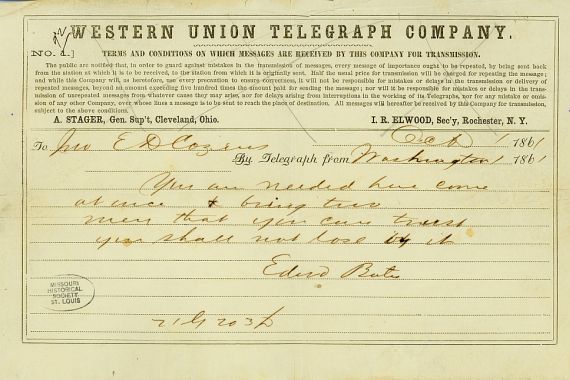 WESTERN UNION TELEGRAPH COMPANY.
[NO. 1.] TERMS AND CONDITIONS ON WHICH MESSAGES ARE RECEIVED BY THIS COMPANY FOR TRANSMISSION.
The public are notified that, in order to guard against mistakes in the transmission of messages, every message of importance ought to be repeated, by being sent back
from the station at which it is to be received, to the station from which it is originally sent. Half the usual price for transmission will be charged for repeating the message;
and while this Company will, as heretofore, use every precaution to ensure correctness, it will not be responsible for mistakes or delays in the transmission or delivery of
repeated messages, beyond an amount exceeding five hundred times the amount paid for sending the message; nor will it be responsible for mistakes or delays in the trans-
mission of unrepeated messages from whatever cause they may arise, nor for delays arising from interruptions in the working of its Telegraphs, nor for any mistake or omis-
sion of any other Company, over whose lines a message is to be sent to reach the place of destination. All messages will hereafter be received by this Company for transmission,
subject to the above conditions.
A. STAGER, Gen. Sup't, Cleveland, Ohio. I. R. ELWOOD, Sec'y, Rochester, N. Y.
1861
To Jno E D Cozens
By Telegraph from Washington 1 1861
You are needed here come
at once & bring two
men that you can trust
you shall not lose by it
Edwd Bates
MISSOURI
HISTORICAL
SOCIETY
ST. LOUIS